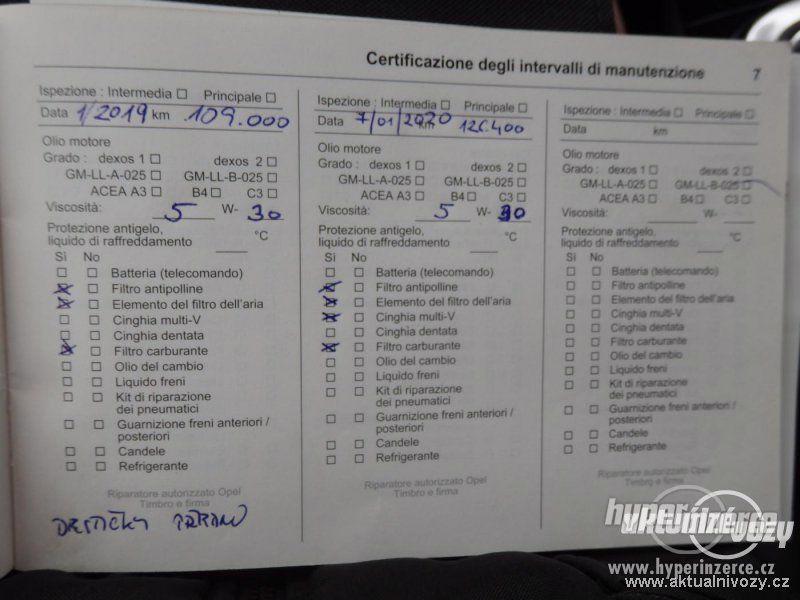 Certificazione degli intervalli di manutenzione 7
Ispezione : Intermedia ☐ Principale ☐
Data 1/2019 km 109.000
Olio motore
Grado : dexos 1 ☐ dexos 2 ☐
GM-LL-A-025 ☐ GM-LL-B-025 ☐
ACEA A3 ☐ B4 ☐ C3 ☐
Viscosità: 5 W- 30
Protezione antigelo,
liquido di raffreddamento °C
Sì No
Batteria (telecomando)
Filtro antipolline
Elemento del filtro dell'aria
Cinghia multi-V
Cinghia dentata
Filtro carburante
Olio del cambio
Liquido freni
Kit di riparazione
dei pneumatici
Guarnizione freni anteriori /
posteriori
Candele
Refrigerante
Riparatore autorizzato Opel
Timbro e firma
Ispezione : Intermedia ☐ Principale ☐
Data 7/01/2020 km 126.400
Olio motore
Grado : dexos 1 ☐ dexos 2 ☐
GM-LL-A-025 ☐ GM-LL-B-025 ☐
ACEA A3 ☐ B4 ☐ C3 ☐
Viscosità: 5 W- 30
Protezione antigelo,
liquido di raffreddamento °C
Sì No
Batteria (telecomando)
Filtro antipolline
Elemento del filtro dell'aria
Cinghia multi-V
Cinghia dentata
Filtro carburante
Olio del cambio
Liquido freni
Kit di riparazione
dei pneumatici
Guarnizione freni anteriori /
posteriori
Candele
Refrigerante
Riparatore autorizzato Opel
Timbro e firma
Ispezione : Intermedia ☐ Principale ☐
Data km
Olio motore
Grado : dexos 1 ☐ dexos 2 ☐
GM-LL-A-025 ☐ GM-LL-B-025 ☐
ACEA A3 ☐ B4 ☐ C3 ☐
Viscosità: W-
Protezione antigelo,
liquido di raffreddamento °C
Sì No
Batteria (telecomando)
Filtro antipolline
Elemento del filtro dell'aria
Cinghia multi-V
Cinghia dentata
Filtro carburante
Olio del cambio
Liquido freni
Kit di riparazione
dei pneumatici
Guarnizione freni anteriori /
posteriori
Candele
Refrigerante
Riparatore autorizzato Opel
Timbro e firma
hyperinzerce
www.hyperinzerce.cz
www.aktualnivozy.cz